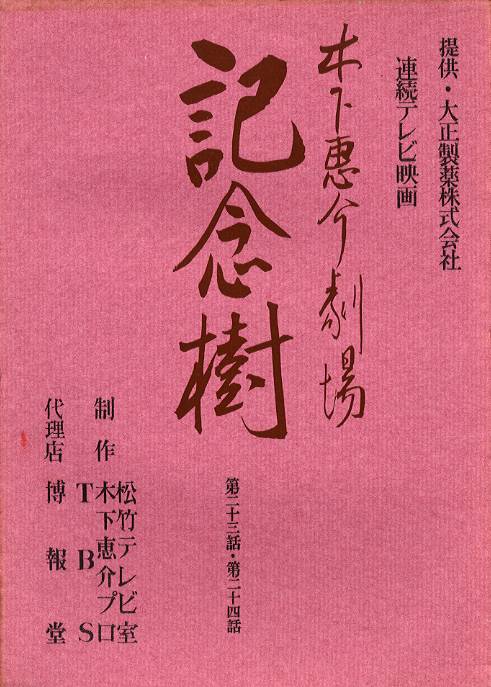 提供・大正製薬株式会社
連続テレビ映画
木下惠介劇場
記念樹
第二十三話・第二十四話
制作
松竹テレビ室
木下恵介プロ
TBS
代理店 博報堂